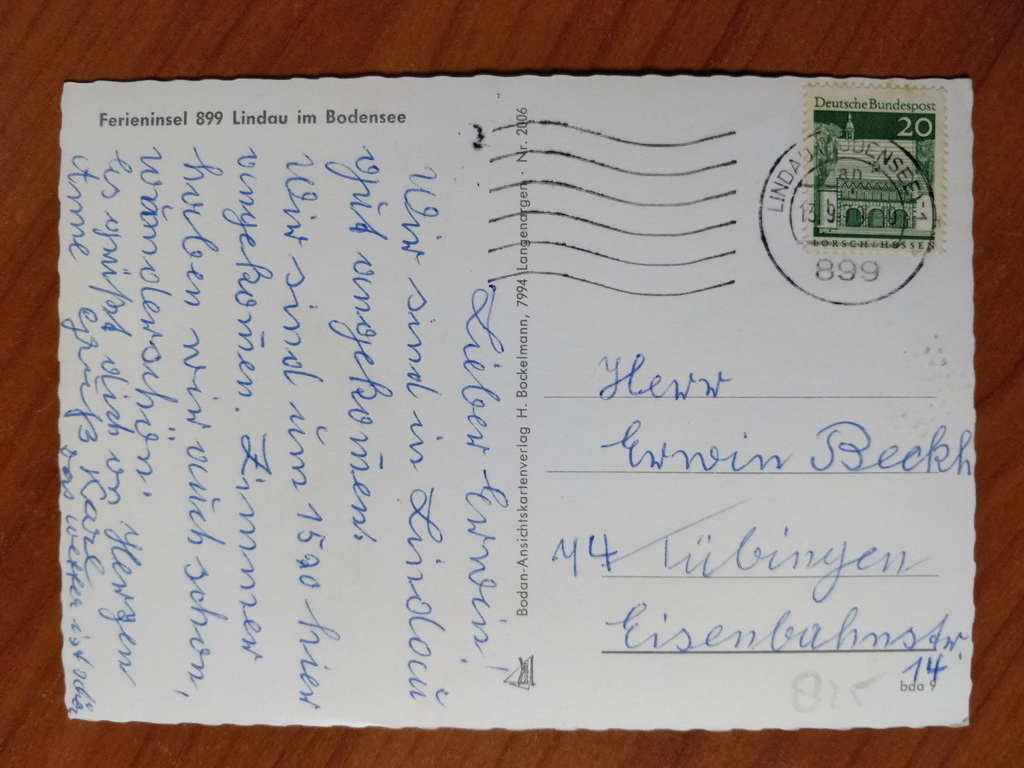 Ferieninsel 899 Lindau im Bodensee
Lieber Erwin!
Wir sind in Lindau
gut angekom̄en.
Wir sind um 15 20 hier
angekom̄en. Zimmer
haben wir auch schon,
wunderschön.
Es grüßt dich von Herzen
Anne Gruß Karl
das Wetter ist
Bodan-Ansichtskartenverlag H. Bockelmann, 7994 Langenargen · Nr. 2006
Deutsche Bundespost
20
LORSCH/HESSEN
LINDAU (BODENSEE) 1
13.9.
899
Herr
Erwin Beckh
74 Tübingen
Eisenbahnstr.
14
bda 9
825